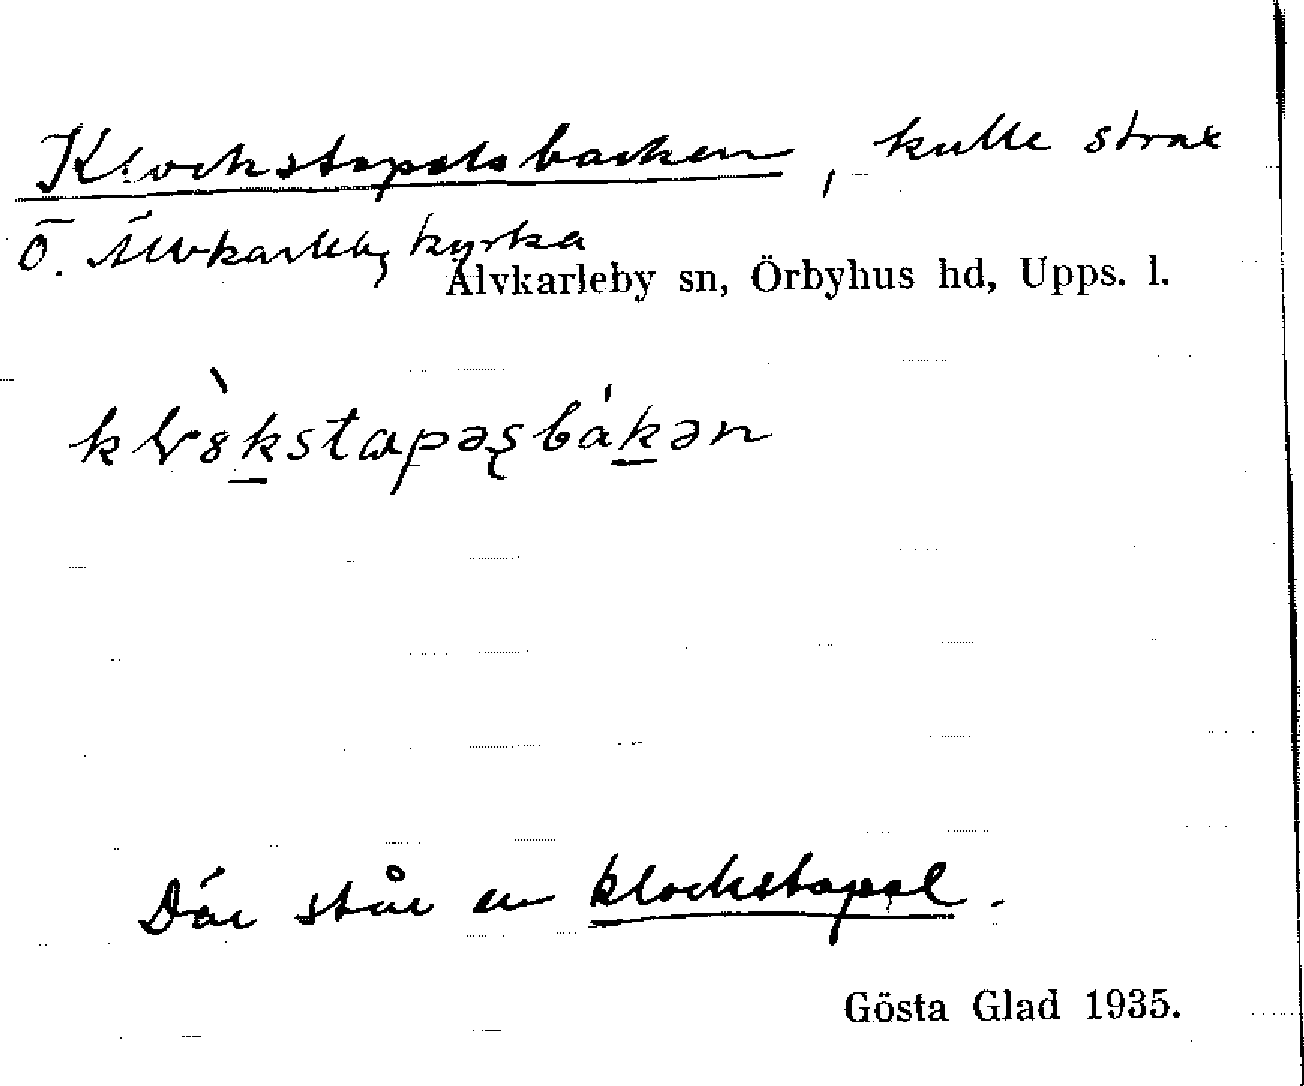 Klockstapelsbacken, kulle strax
Ö. Älvkarleby kyrka
Älvkarleby sn, Örbyhus hd, Upps. l.
Där står en klockstapel.
Gösta Glad 1935.